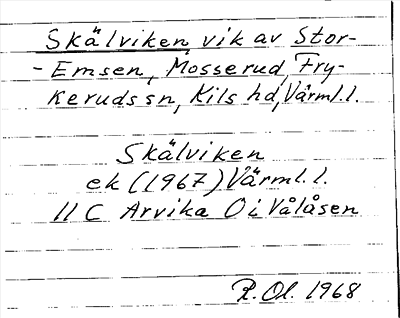 Skälviken, vik av Stor-
-Emsen, Mosserud, Fry-
kerudssn, Kils hd, Värml.l.
Skälviken
ek (1967) Värml.l.
11 C Arvika Ö i Vålåsen
R. Ol. 1968